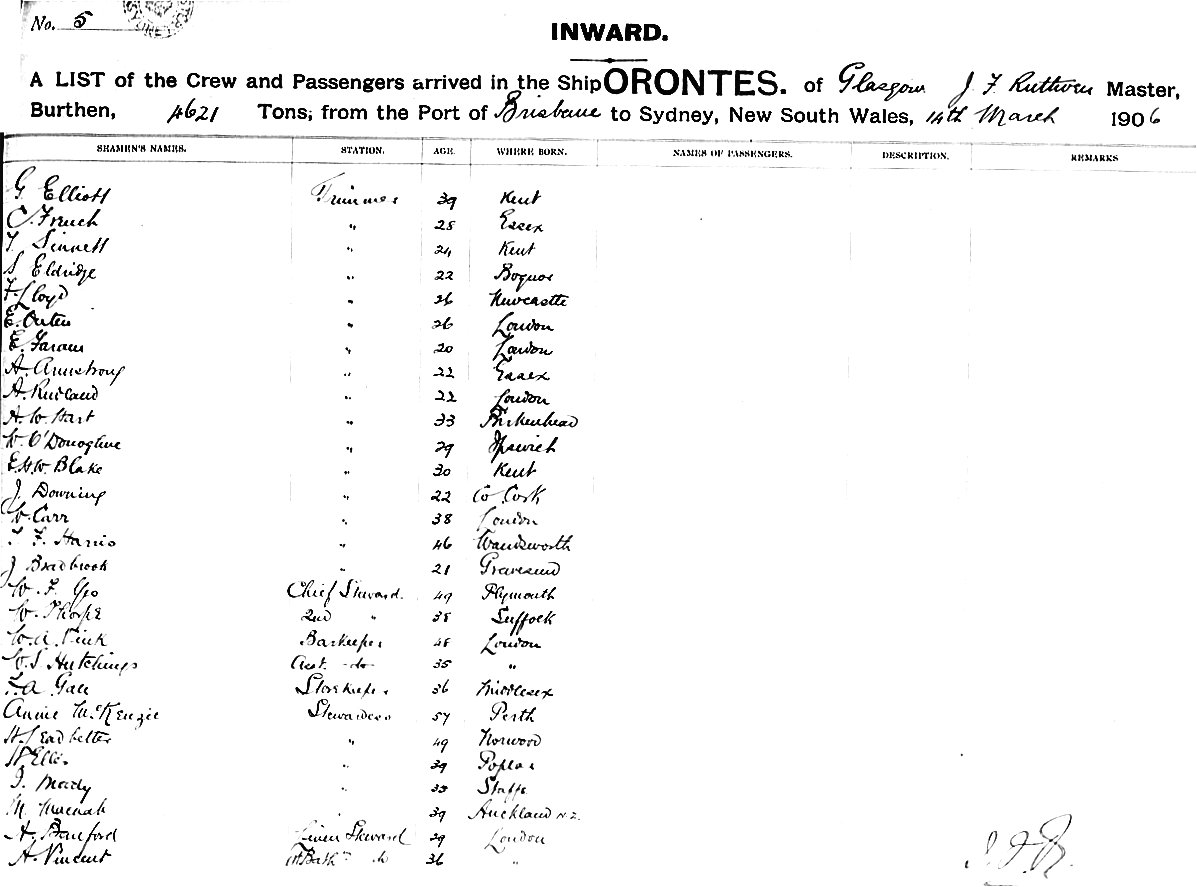 No. 5
INWARD.
A LIST of the Crew and Passengers arrived in the Ship ORONTES. of Glasgow J F Ruthven Master,
Burthen, 4621 Tons, from the Port of Brisbane to Sydney, New South Wales, 14th March 1906
SEAMEN'S NAMES. STATION. AGE. WHERE BORN. NAMES OF PASSENGERS. DESCRIPTION. REMARKS
G Elliott Trimmer 39 Kent
C. French " 28 Essex
T. Sinnett " 24 Kent
S Eldridge " 22 Bognor
F Lloyd " 26 Newcastle
E. Outen " 26 London
E. " 20 London
A. Armstrong " 22 Essex
A. Rudland " 22 London
A. W. Hart " 33 Birkenhead
W. O'Donoghue " 29 Ipswich
E.H.W. Blake " 30 Kent
J. Downing " 22 Co Cork
W. Carr " 38 London
T F. Harris " 46 Wandsworth
J Bradbrook " 21 Gravesend
W. F. Geo Chief Steward. 49 Plymouth
W. Thorpe 2nd " 38 Suffock
W. A. Pink Barkeeper 48 London
W. S Hutchings Asst. -do- 35 "
F. A Gall Storekeeper 36 Middlesex
Annie McKenzie Stewardess 57 Perth
H. Leadbetter " 49 Norwood
Ellis " 39 Poplar
Moody " 35 Staffs
M. Macnab " 39 Auckland N.Z.
A. Banford Linen Steward 29 London
A. Vincent Bath do 36 "